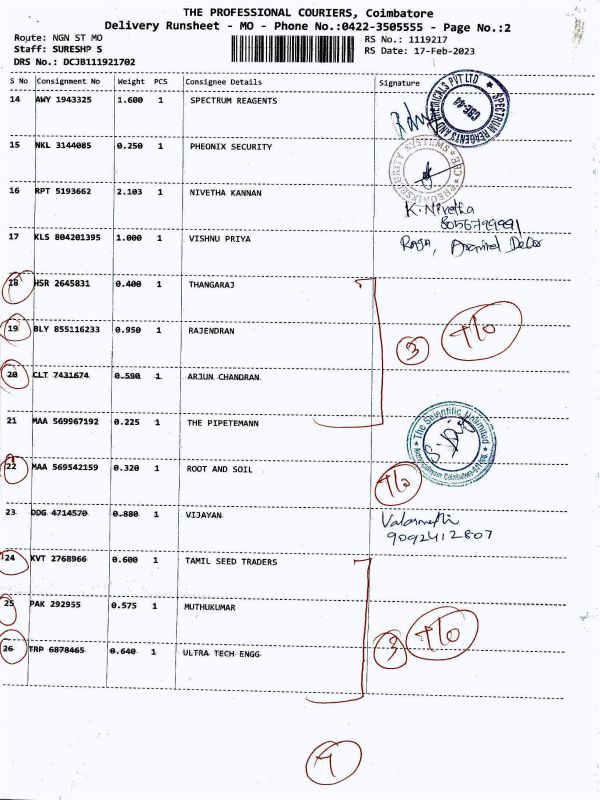 THE PROFESSIONAL COURIERS, Coimbatore
Delivery Runsheet - MO - Phone No.:0422-3505555 - Page No.:2
Route: NGN ST MO RS No.: 1119217
Staff: SURESHP S RS Date: 17-Feb-2023
DRS No.: DCJB111921702
S No Consignment No Weight PCS Consignee Details Signature
14 AWY 1943325 1.600 1 SPECTRUM REAGENTS
SPECTRUM REAGENTS AND CHEMICALS PVT LTD
15 NKL 3144085 0.250 1 PHEONIX SECURITY
SECURITY SYSTEMS CBE
16 RPT 5193662 2.103 1 NIVETHA KANNAN
K. Nivetha
8056799991
17 KLS 804201395 1.000 1 VISHNU PRIYA
RAJA,
18 HSR 2645831 0.400 1 THANGARAJ
19 BLY 855116233 0.950 1 RAJENDRAN
3 T/o
20 CLT 7431674 0.590 1 ARJUN CHANDRAN
21 MAA 569967192 0.225 1 THE PIPETEMANN
The Scientific Unlimited
22 MAA 569542159 0.320 1 ROOT AND SOIL
T/o
23 DDG 4714570 0.880 1 VIJAYAN
Valarmathi
9092412807
24 KVT 2768966 0.600 1 TAMIL SEED TRADERS
25 PAK 292955 0.575 1 MUTHUKUMAR
3 T/o
26 TRP 6878465 0.640 1 ULTRA TECH ENGG